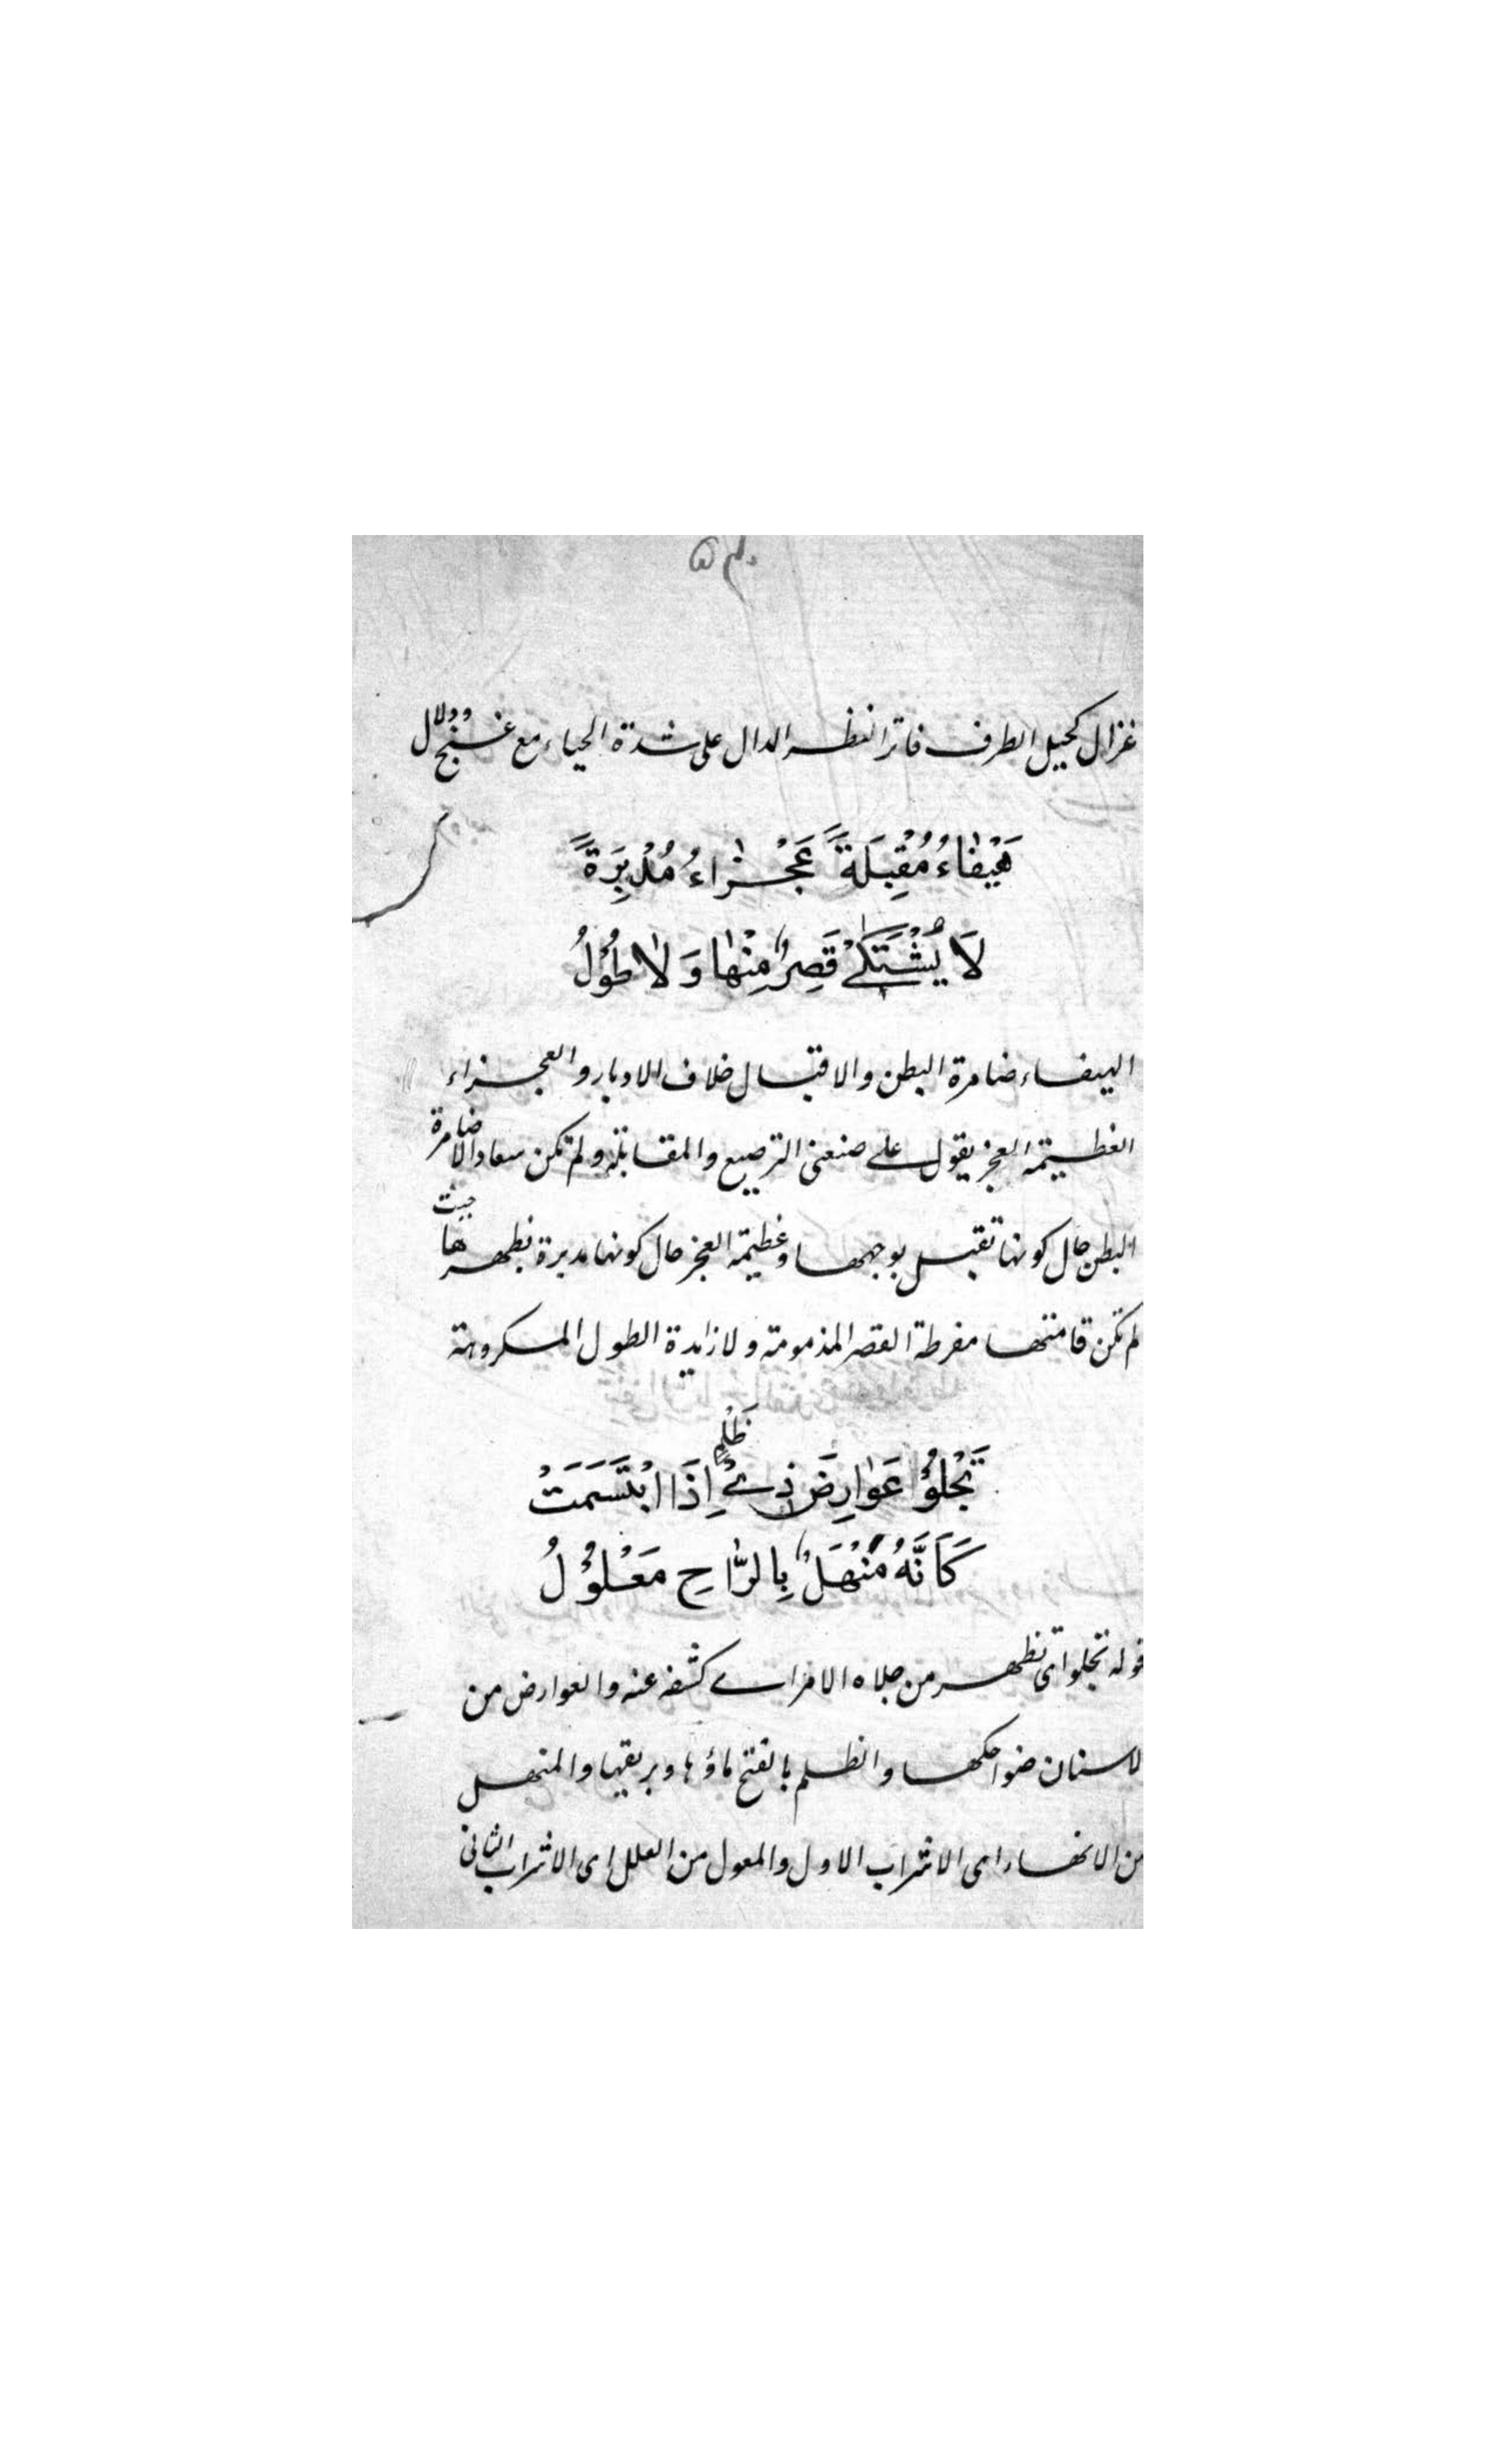 غزال كحيل الطرف فاتر النظر الدال على شدة الحياء مع غنج ودلال
هَيْفَاءُ مُقْبِلَةً عَجْزَاءُ مُدْبِرَةً
لَا يُشْتَكٰى قَصِرٌ مِنْهَا وَلَا طُوْلُ
الهيفاء ضامرة البطن والاقبال خلاف الادبار والعجزاء
العظيمة العجز يقول على صنعتى الترصيع والمقابلة ولم تكن سعاد الا ضامرة
البطن حال كونها تقبل بوجهها وعظيمة العجز حال كونها مدبرة بظهرها حيث
لم تكن قامتها مفرطة القصر المذمومة ولا زايدة الطول المكروهة
تَجْلُوْا عَوَارِضَ ذِىْ ظَلْمٍ اِذَا ابْتَسَمَتْ
كَاَنَّهُ مُنْهَلٌ بِالرَّاحِ مَعْلُوْلُ
قوله تجلوا اى تظهر من جلاه الامر اى كشفه عنه والعوارض من
لاسنان ضواحكها والظلم بالفتح ماؤها وبريقها والمنهل
من الانهار اى الاشراب الاول والمعول من العلل اى الاشراب الثانى